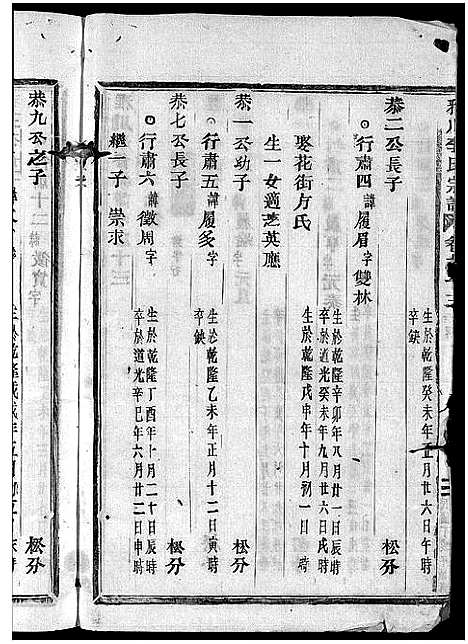 李氏宗譜
生於乾隆癸未年正月廿六日午時
卒缺
恭二公長子 松分
行肅四 諱履眉 字雙林
生於乾隆辛卯年八月廿一日辰時
卒於道光癸未年九月廿六日戌時
娶花街方氏
生於乾隆戊申年十月初一日 時
卒缺
生一女適芝英應
恭一公幼子 松分
行肅五 諱履多 字
生於乾隆乙未年正月十二日寅時
卒缺
恭七公長子 松分
行肅六 諱徵周 字
生於乾隆丁酉年十月二十日辰時
卒於道光辛巳年六月廿二日申時
繼一子 崇求
恭九公之子 松分